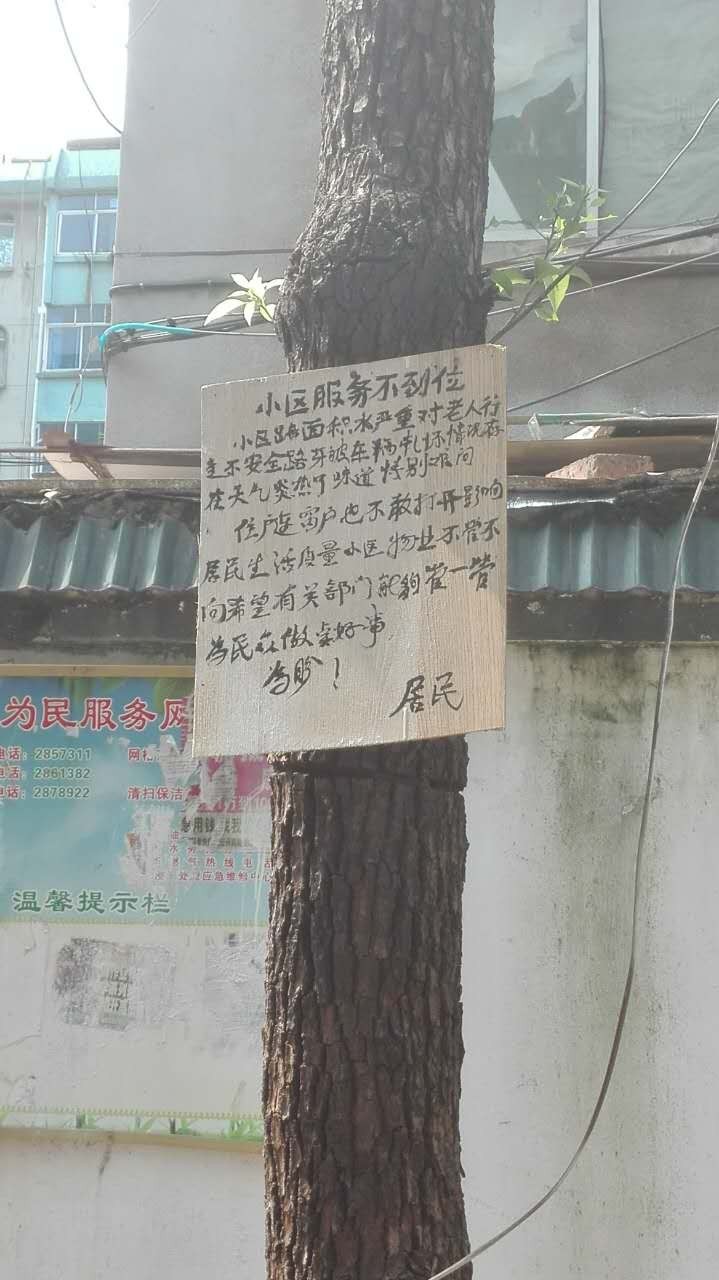 小区服务不到位
小区路面积水严重对老人行
走不安全路牙被车辆轧坏情况存
在天气炎热下味道特别难闻
住户连窗户也不敢打开影响
居民生活质量小区物业不管不
问希望有关部门能够管一管
为民众做实好事
为盼!
居民
为民服务网
电话：2857311
网
电话：2861382
电话：2878922
清扫保洁
急用钱 找我
油
水
气热线电话
处 应急维修中心
温馨提示栏